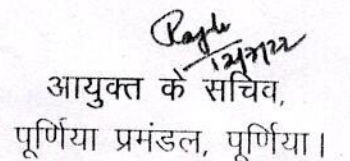 12/7/22
आयुक्त के सचिव,
पूर्णिया प्रमंडल, पूर्णिया।